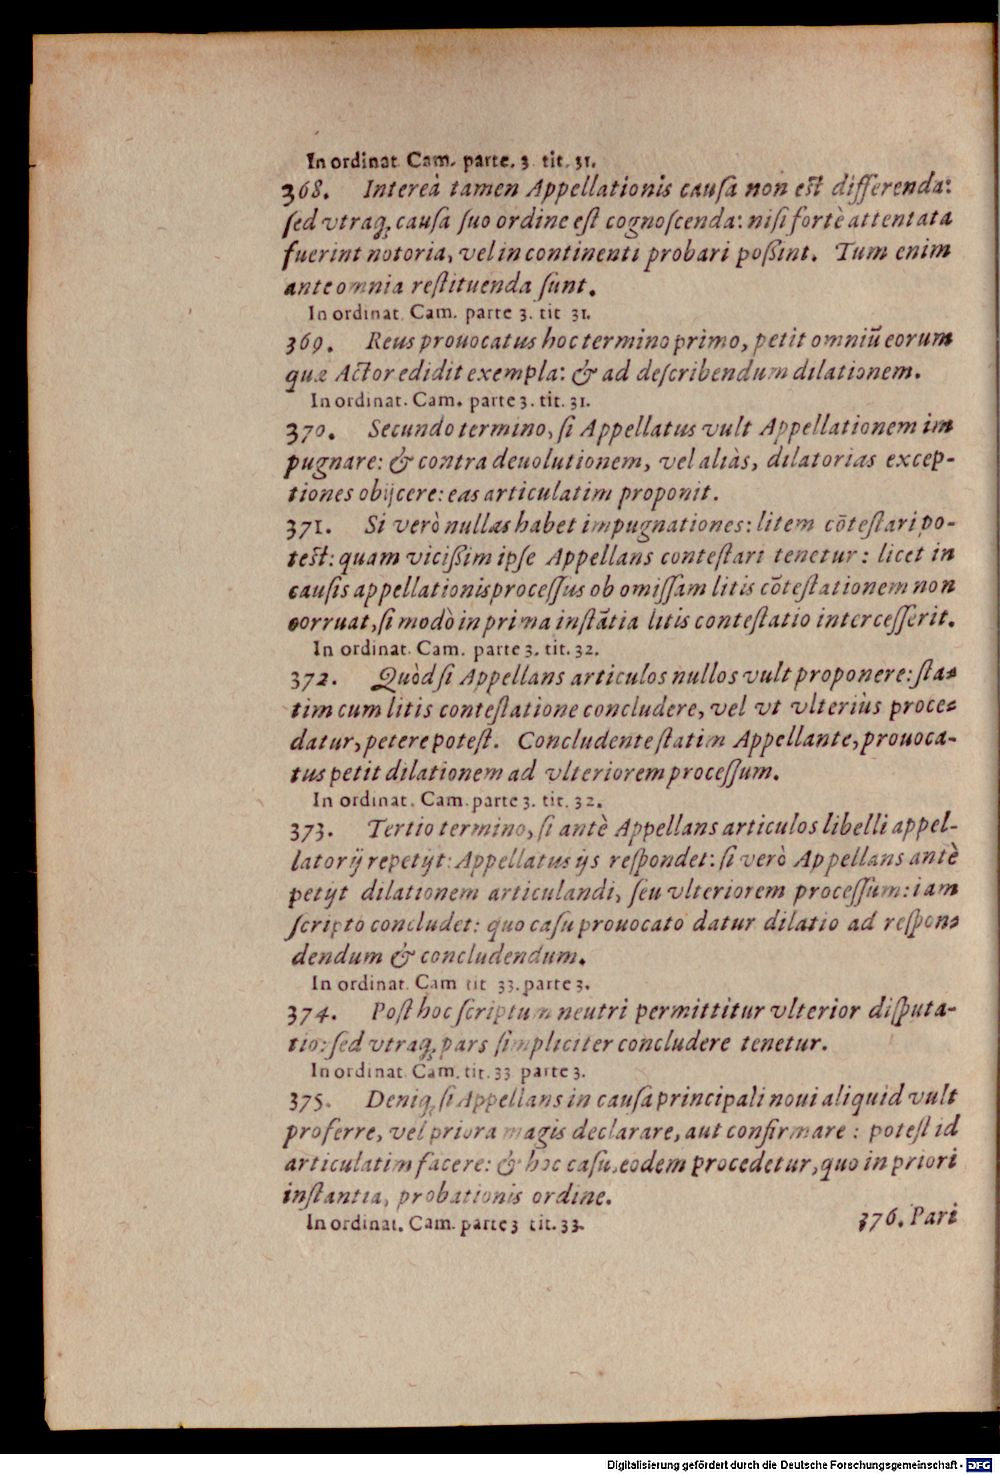 In ordinat. Cam. parte. 3 tit. 31.
368. Intereà tamen Appellationis cauſa non eſt differenda:
ſed vtraq; cauſa ſuo ordine eſt cognoſcenda: niſi fortè attentata
fuerint notoria, vel in continenti probari poßint. Tum enim
ante omnia reſtituenda ſunt.
In ordinat. Cam. parte 3. tit 31.
369. Reus prouocatus hoc termino primo, petit omniū eorum
quæ Actor edidit exempla: & ad deſcribendum dilationem.
In ordinat. Cam. parte 3. tit. 31.
370. Secundo termino, ſi Appellatus vult Appellationem im
pugnare: & contra deuolutionem, vel aliàs, dilatorias excep-
tiones obijcere: eas articulatim proponit.
371. Si verò nullas habet impugnationes: litem cōteſtari po-
teſt: quam vicißim ipſe Appellans conteſtari tenetur: licet in
cauſis appellationis proceſſus ob omiſſam litis cōteſtationem non
corruat, ſi modò in prima inſtātia litis conteſtatio interceſſerit.
In ordinat. Cam. parte 3. tit. 32.
372. Quòd ſi Appellans articulos nullos vult proponere: ſta-
tim cum litis conteſtatione concludere, vel vt vlteriùs proce-
datur, petere poteſt. Concludente ſtatim Appellante, prouoca-
tus petit dilationem ad vlteriorem proceſſum.
In ordinat. Cam. parte 3. tit. 32.
373. Tertio termino, ſi antè Appellans articulos libelli appel-
latorij repetijt: Appellatus ijs reſpondet: ſi verò Appellans antè
petijt dilationem articulandi, ſeu vlteriorem proceſſum: iam
ſcripto concludet: quo caſu prouocato datur dilatio ad reſpon-
dendum & concludendum.
In ordinat. Cam tit 33. parte 3.
374. Poſt hoc ſcriptum neutri permittitur vlterior diſputa-
tio: ſed vtraq; pars ſimpliciter concludere tenetur.
In ordinat. Cam. tit. 33 parte 3.
375. Deniq; ſi Appellans in cauſa principali noui aliquid vult
proferre, vel priora magis declarare, aut confirmare: poteſt id
articulatim facere: & hoc caſu, eodem procedetur, quo in priori
inſtantia, probationis ordine.
In ordinat. Cam. parte 3 tit. 33.
376. Pari
Digitalisierung gefördert durch die Deutsche Forschungsgemeinschaft - DFG